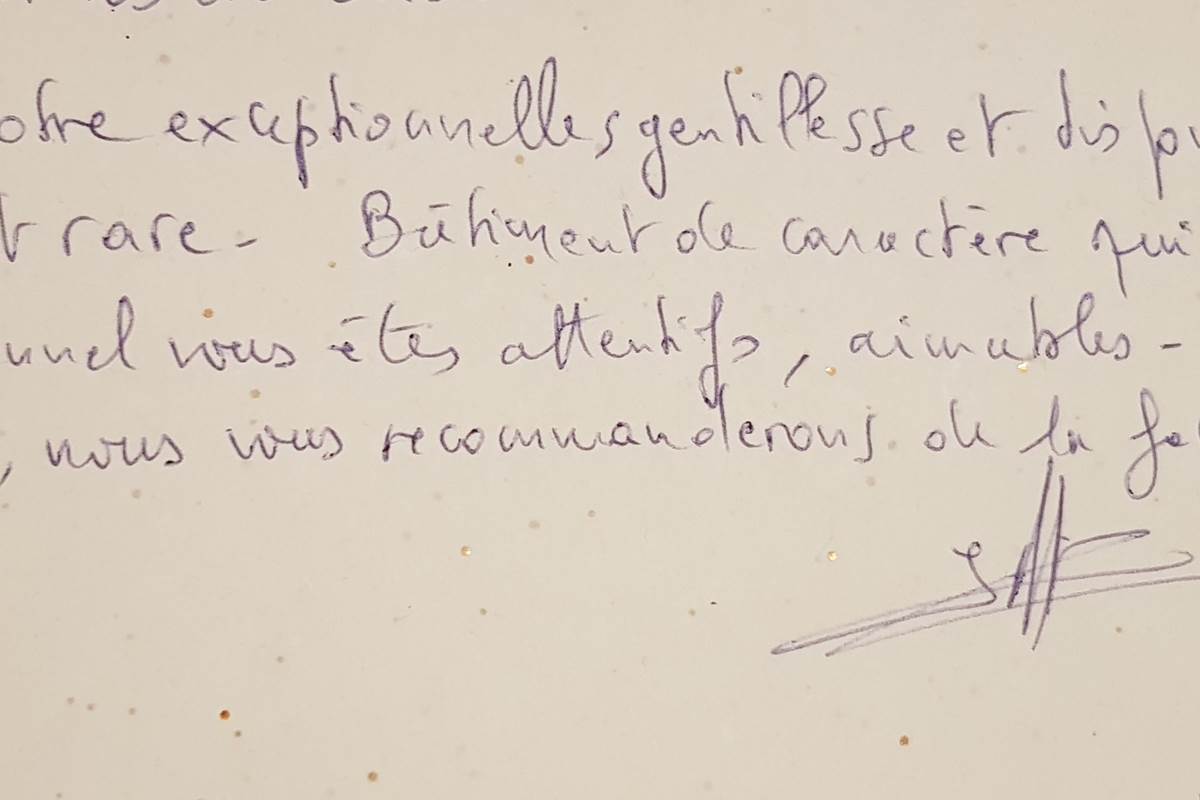 otre exceptionnelles gentillesse et dispo
t rare - Bâtiment de caractère qui
nnel vous êtes attentifs, aimables -
, nous vous recommanderons de la fa